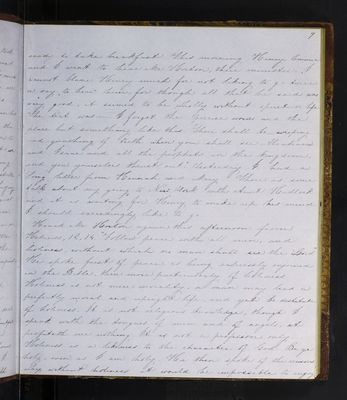 7
said to take breakfast. This morning Henry, Emma
and I went to hear Mr Horton, their minister. I
cannot blame Henry much for not liking to go twice
a day, to hear him, for though all that he said was
very good, it seemed to be wholly without spirit or life
The text was — I forget the precise words and the
place but something like this There shall be weeping
and gnashing of teeth when you shall see Abraham
Isaac &c all the prophets in the kingdom
and you yourselves thrust out. Yesterday I had a
long letter from Hannah and Mary. There is some
talk about my going to New York with Aunt
and it is waiting for Henry to make up his mind.
I should exceedingly like to go.
Heard Mr Horton again this afternoon from
Hebrews, 12, 14 "Follow peace with all men, and
holiness without which no man shall see the Lord"
He spoke first of peace as being especially enjoined
in the Bible, then more particularly of holiness
Holiness is not mere morality, a man may lead a
perfectly moral and upright life and yet be destitute
of holiness. It is not religious knowledge, though I
speak with the tongues of men and of angels, it
profiteth me nothing. It is not a profession, only
Holiness is a likeness to the character of God. Be ye
holy, even as I am holy. He then spoke of the
way without holiness It would be impossible to enjoy